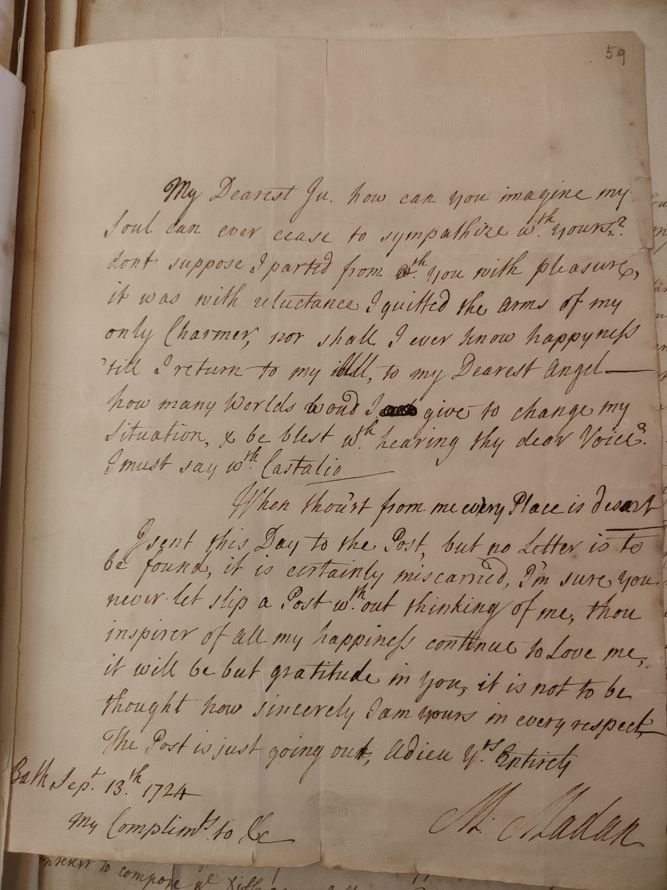 59
My Dearest Ju. how can you imagine my
Soul can ever cease to sympathize wth. yours?
dont suppose I parted from you with pleasure,
it was with reluctance I quitted the arms of my
only Charmer, nor shall I ever know happyness
'till I return to my, to my Dearest Angel—
how many Worlds woud I give to change my
Situation, & be blest wth. hearing thy dear Voice?
I must say wth. Castalio
When thou'rt from me every Place is desart
I sent this Day to the Post, but no Letter is to
be found, it is certainly miscarried, I'm sure you
never let slip a Post wth.out thinking of me, thou
inspirer of all my happiness continue to Love me,
it will be but gratitude in you, it is not to be
thought how sincerely I am yours in every respect
The Post is just going out, Adieu Yrs. Entirely
Bath Sept. 13th. 1724
M: Madan
My Complimts. to &c
to compose ye